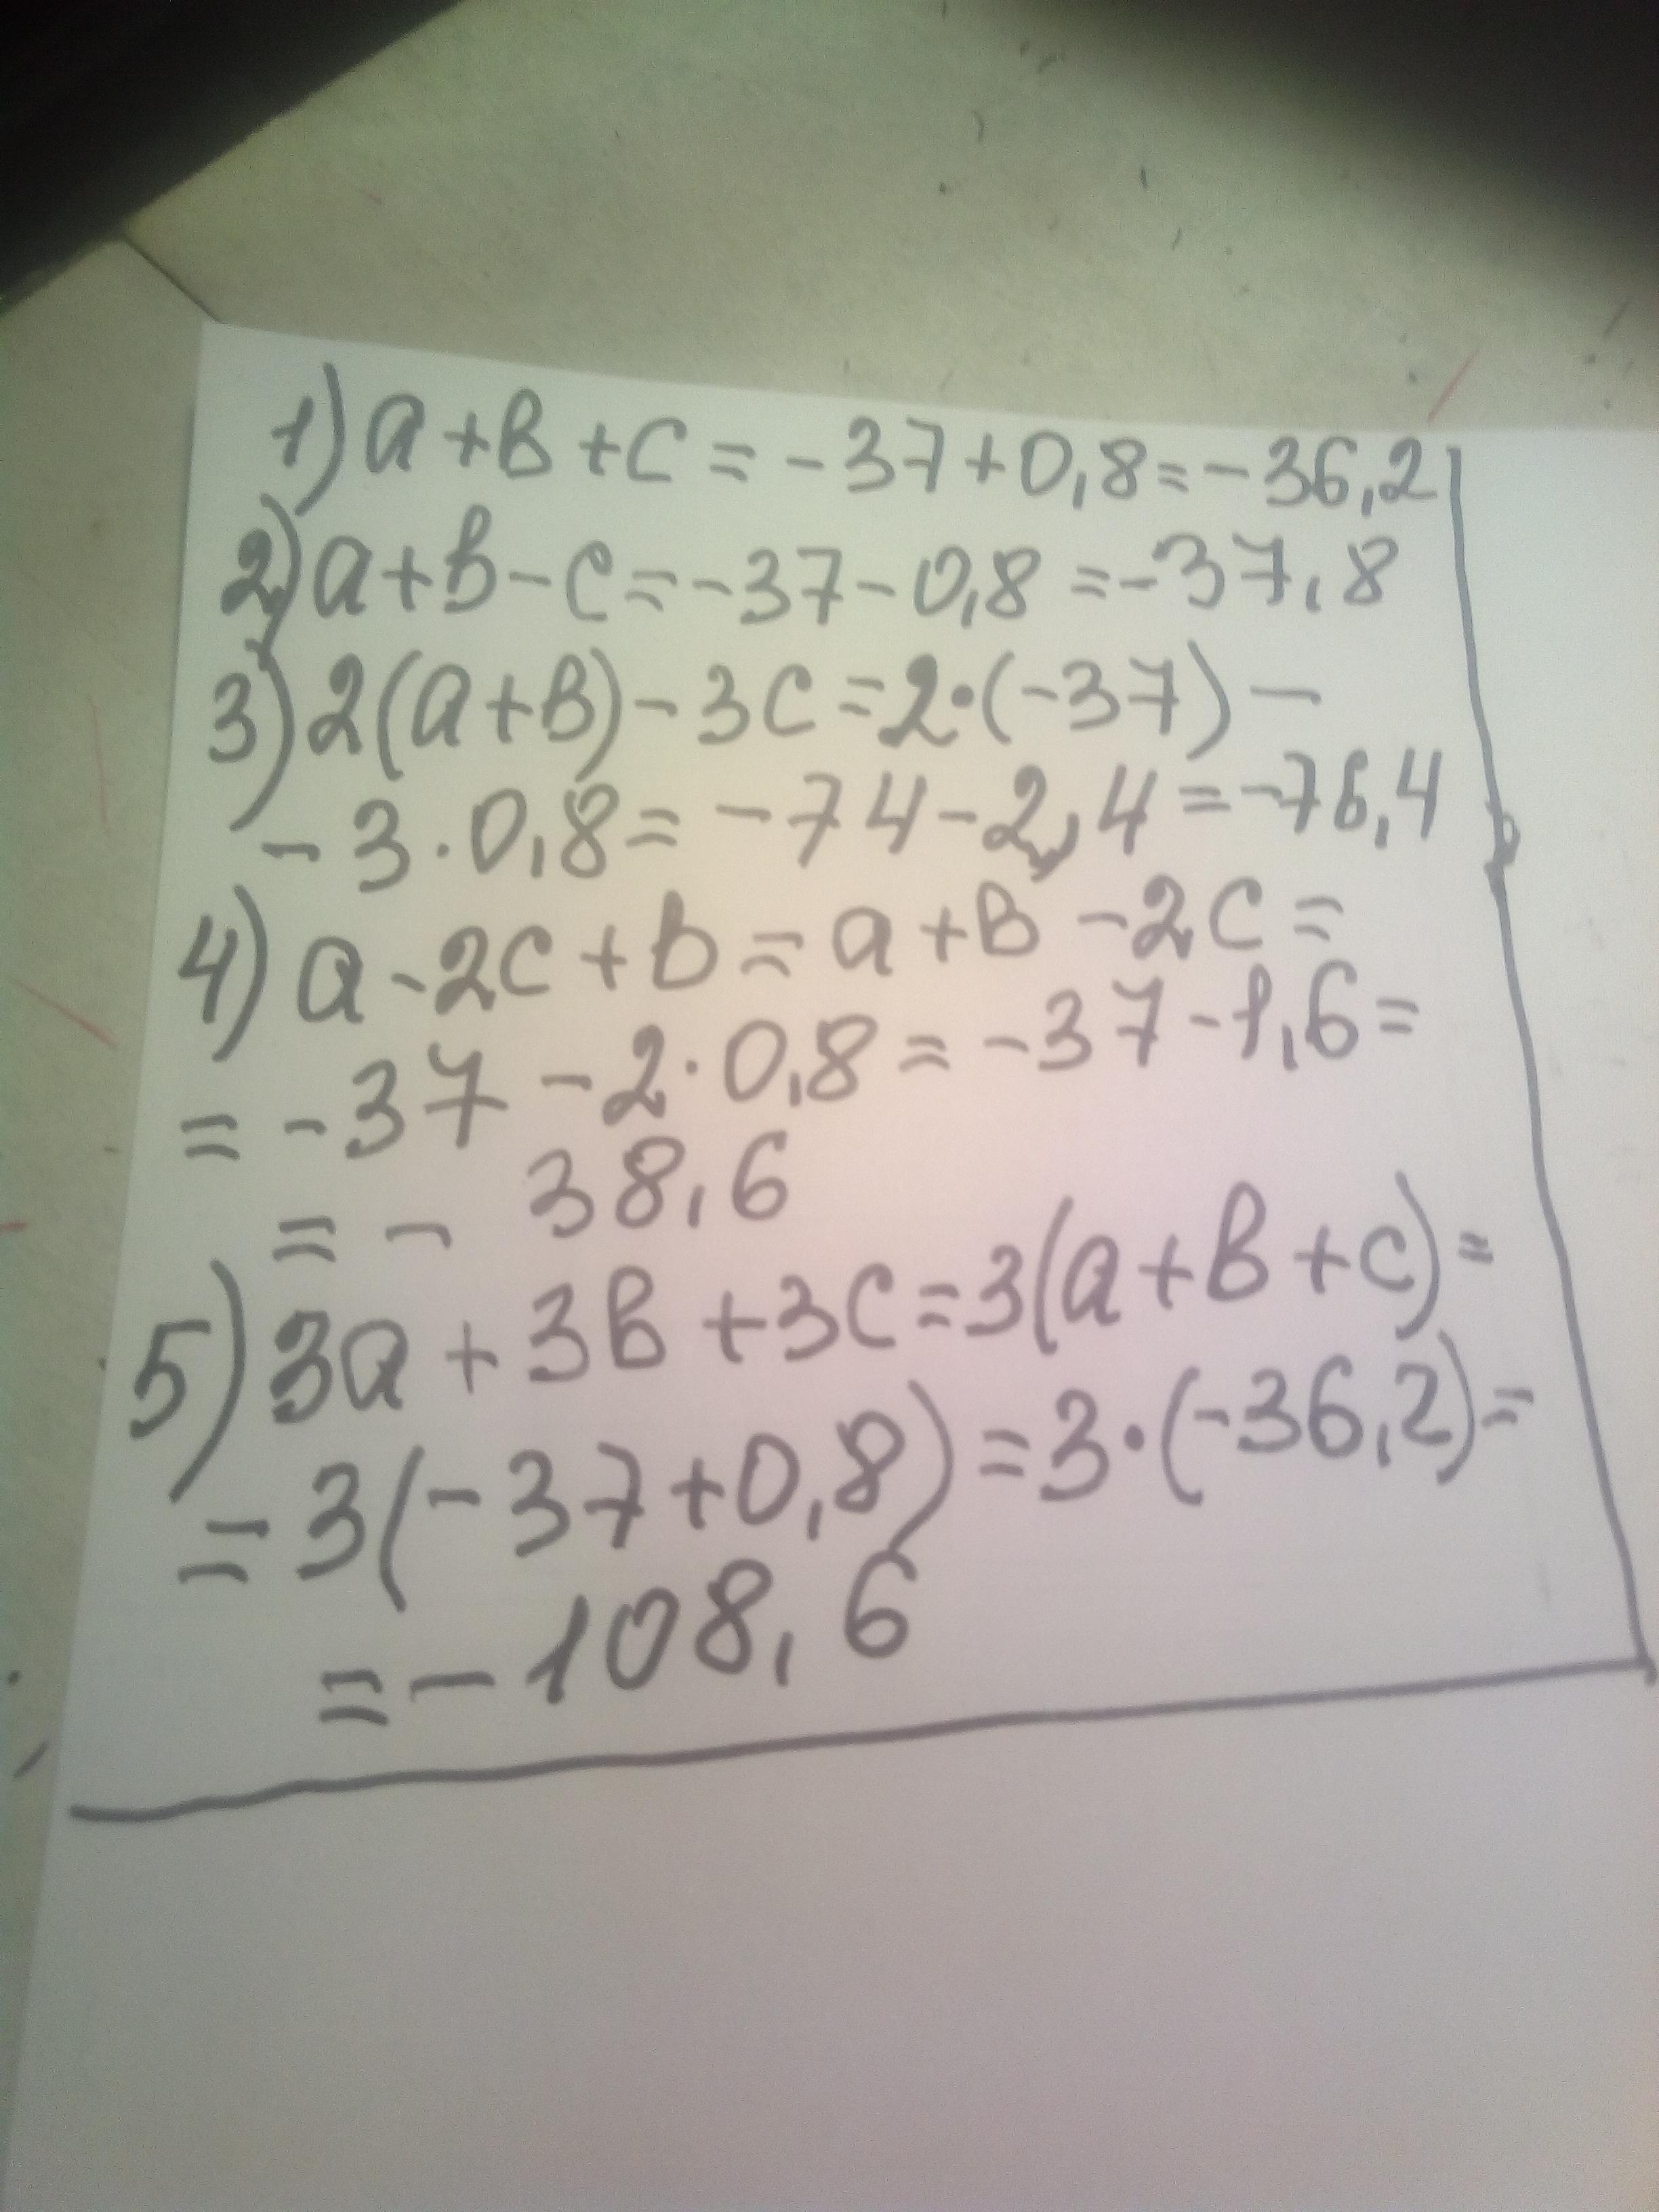 1) a + b + c = - 37 + 0,8 = - 36,2
2) a + b - c = - 37 - 0,8 = - 37,8
3) 2(a + b) - 3c = 2 · (-37) -
- 3 · 0,8 = - 74 - 2,4 = - 76,4
4) a - 2c + b = a + b - 2c =
= - 37 - 2 · 0,8 = - 37 - 1,6 =
= - 38,6
5) 3a + 3b + 3c = 3(a + b + c) =
= 3(-37 + 0,8) = 3 · (-36,2) =
= - 108,6